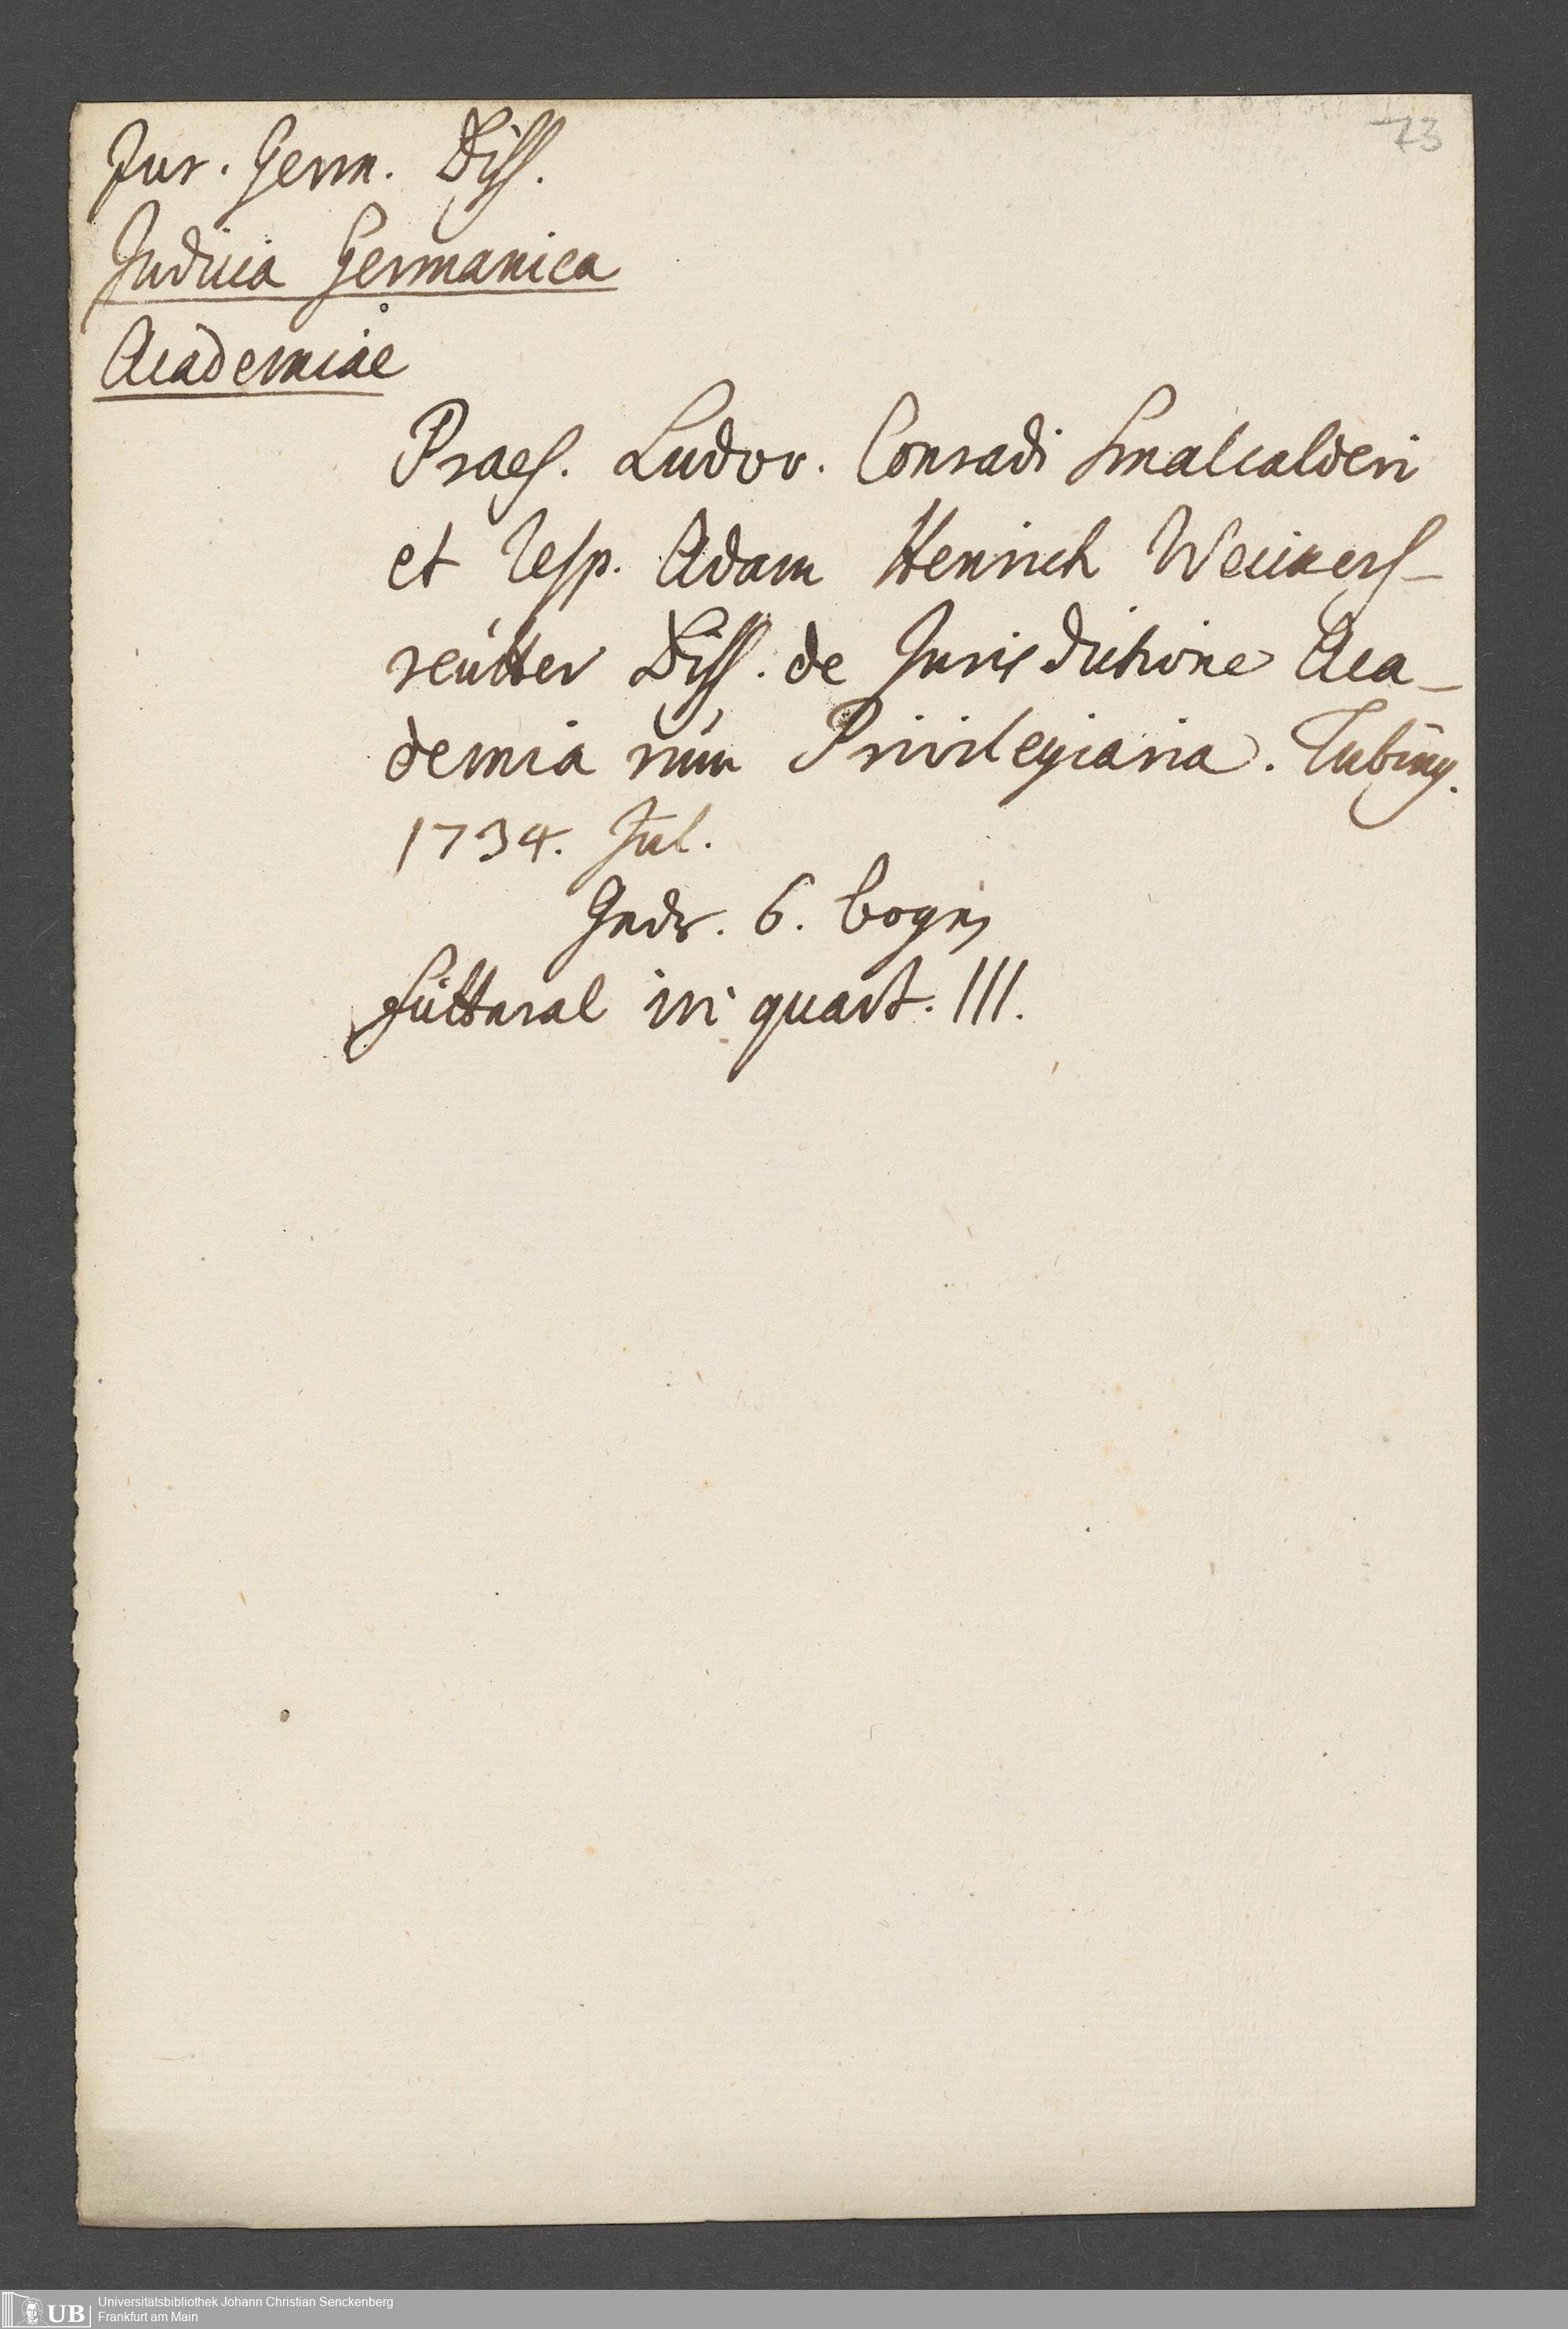 73
Jur. Germ. Diss.
Judicia Germanica
Academiae
Praes. Ludov. Conradi Smalcalderi
et Resp. Adam Henrich Weickers-
reütter Diss. de Jurisdictione Aca-
demia rum Privilegiaria. Tubing.
1734. Jul.
6. bogen
Futteral in quart. III.
UB
Universitätsbibliothek Johann Christian Senckenberg
Frankfurt am Main